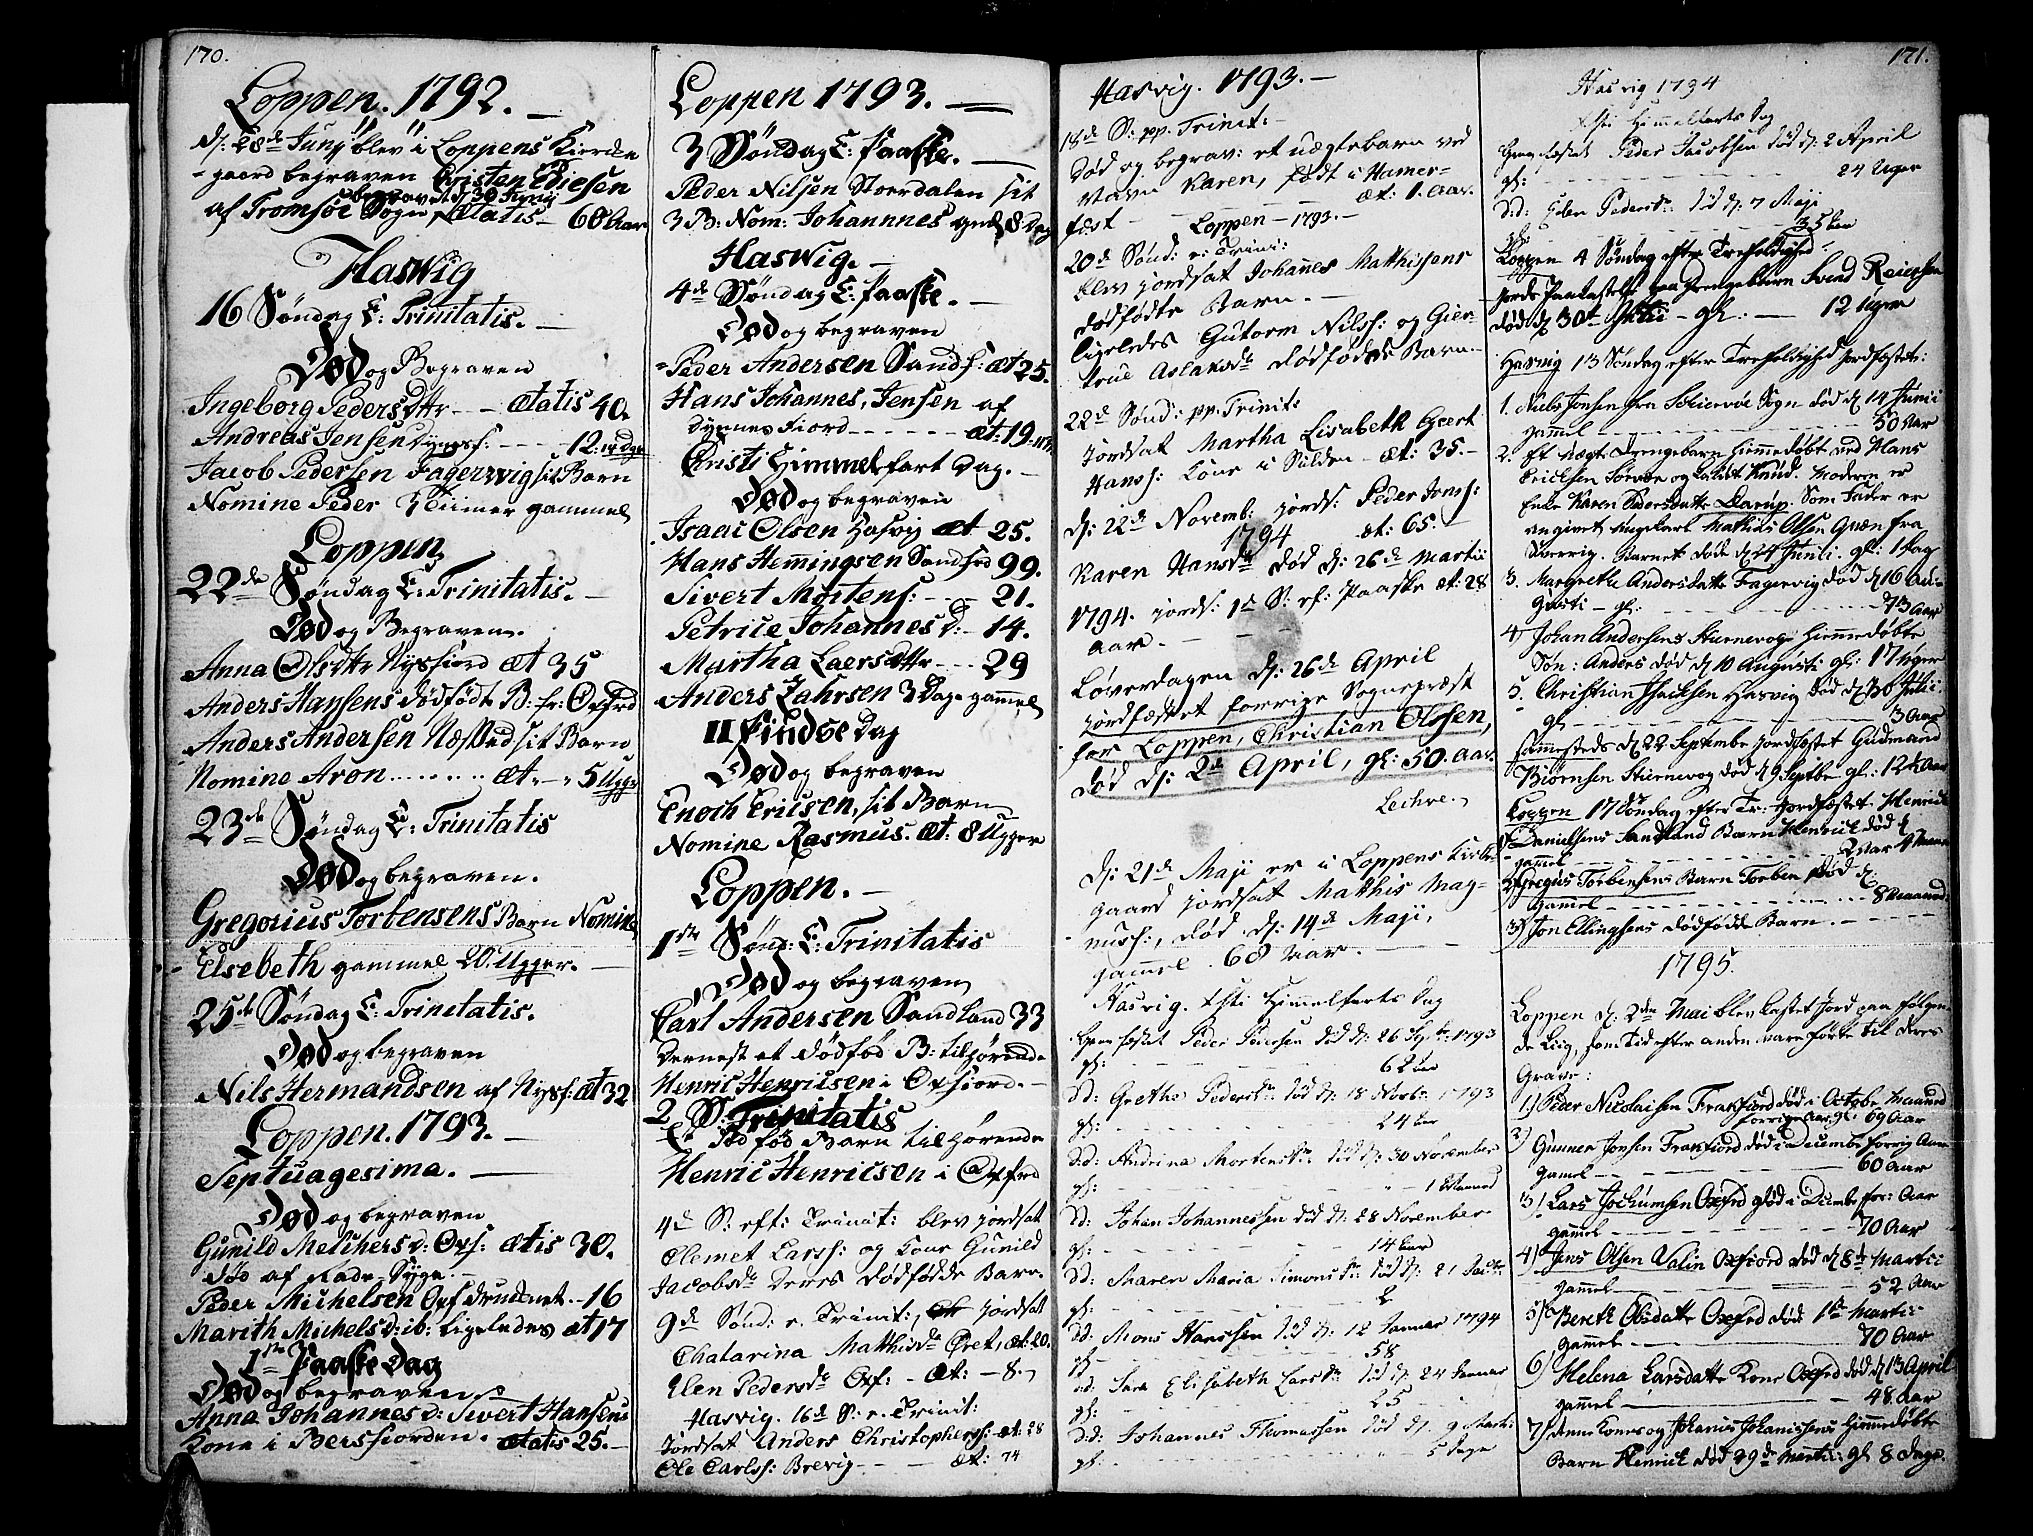 170.
Loppen. 1792.
d: 28de Junij blev i Loppens Kierke
gaard begraven Christen Ediesen
begravet d: 30 Junij
af Tromsøe Sogn, Ætatis 60 Aar
Haswig
16 Søndag E: Trinitatis.
Død og Begraven
Ingeborg Peders Dttr - - Ætatis 40.
Andreas Jensen - - - - 12: 14 Dge
Jacob Pedersen Fagerwig sit Barn
Nomine Peder 3 Tiimer gammel
Loppen
22de Søndag E: Trinitatis.
Død og Begraven.
Anna Olsdttr Nysfiord æt 35
Anders Hansens dødfødt B: fr: Oxfrd
Anders Andersen Næsved sit Barn
Nomine Aron ........ æt. - " 5 Ugger
23de Søndag E: Trinitatis
Død og begraven.
Gregorius Torbensens Barn Nomine
Elsebeth gammel 20. Ugger.
25de Søndag E: Trinitatis.
Død og begraven
Nils Hermandsen af Nysf: æt 32
Loppen. 1793.
Septuagesima.
Død og begraven
Gunild Melchers d: Oxf: ætis 30.
død af Rade Syge.
Peder Michelsen Oxf druknet - 16
Marith Michels d: ib: ligeledes æt 17
1ste Paaske Dag
Død og begraven
Anna Johannes d: Sivert Hansens
Kone i Bersfiorden. Ætatis 25.
Loppen 1793.
3 Søndag E: Paaske.
Peder Nilsen Stoerdalen sit
3 B: Nom: Johannnes gml 8 Dag
Haswig.
4de Søndag E: Paaske.
Død og begraven
Peder Andersen Sandf: æt 25.
Hans Johannes, Jensen af
Dynnes Fiord - - - - - - æt: 19.
Christi Himmelfart Dag.
Død og begraven
Isaac Olsen Hasvig Æt 25.
Hans Hemingsen Sandfrd 99.
Sivert Mortens: - - - 21.
Petrice Johannes d: - 14.
Martha Laers Dttr - - - 29
Anders Zahrsen 3 Dage gammel
II Pindse Dag
Død og begraven
Enoch Ericsen, sit Barn
Nomine Rasmus. Æt: 8 Ugger
Loppen.
1ste Sønd: E: Trinitatis
Død og begraven
Carl Andersen Sandland 33
Dernest et dødfød B: tilhørende
Henric Henricsen i Oxfiord.
2 S: Trinitatis
Et Død fød Barn tilhørende
Henric Henricsen i Oxfrd
4de S: eft: Trinit: blev jordsat
Clemet Larss: og Kone Gunild
Jacobsdr deres dødfødde Barn.
9de Sønd: e: Trinit:, jordsat
Chatarina Mathisdr Øret, æt: 20.
Elen Pedersdr Oxf: - Æt: - 8.
Hasvig. 16de S: e: Trinit:
Jordsat Anders Christophers: æt: 28
Ole Carlss: Brevig - - - æt: 74
Hasvig. 1793.
18de S: pp: Trinit:
Død og begrav: et uægtebarn ved
Navn Karen, født i Hamer-
fest - - - - - æt: 1. Aar.
Loppen - 1793.
20de Sønd: e: Trini:
blev jordsat Johanes Mathisens
dødfødte Barn.
ligeledes Gutorm Nilss: og Gier-
true Aslaksdr dødfødde Barn.
22de Sønd: pp: Trinit:
Jordsat Martha Lisabeth Geert
Hanss: Kone i Silden - æt: 35.
d: 22de Novemb: jords: Peder Jons:
æt: 65.
1794
Karen Hansdr død d: 26de Martii
1794. jords: 1de S: ef: Paaske æt: 28
Aar.
Løverdagen d: 26de April
jordfæstet forrige Sognepræst
for Loppen, Christian Olssen,
død d: 2de April, gl: 50. Aar.
Lechve.
d: 21de Maji er i Loppens Kirke-
gaard jordsat Mathis Mag-
nuss:, død d: 14de Maji,
gammel 60 Aar.
Hasvig. Xsti Himmelfarts Dag
Peder Pedersen død d: 26 Septbr: 1793
gl: 62 Aar
Dd: Grethe Pedersdr død d: 18 Novbr: 1793
gl: - - - 24 Aar
Dd: Andrina Mortensdr død d: 30 November
gl: - - - 1 Maaned
Dd: Johan Johannessen død d: 28 November
gl: - - - 14 Aar
Dd: Maren Maria Simonsdr død d: 21
gl: - - -
Dd: Mons Hanssen død d: 12 Januar 1794
gl: - - - 58
Dd: Sara Elisabeth Larsdr død d: 24 Januar
gl: - - - 25
Dd: Johannes Thomassen død d: 9 Marti
gl: - - - 5 Dage
171.
Hasvig 1794
Xsti Himmelfarts Dag
Peder Jacobsen død d: 2 April
gl: - - - 24 Uger
Dd: Elen Pedersdr død d: 7 Maji
gl: - - - 35 Aar
Loppen 4 Søndag efter Trefoldighed
Jords Paakastet paa Drengebarn Svend
død d 30te Martii - gl: - 12 Uger
Hasvig 13 Søndag efter Trefoldighed jordfæstet:
1. Niels Jonsen fra Schiervøe Sogn død d 14 Junii
gammel - - - 50 Aar
2. Et Uægte Drengebarn hiemmedøbt ved Hans
Ericksen Sørvær og kaldt Knud. Moderen er
Enke Karen Pedersdatter Darup. Som Fader er
angivet Ungkarl Mathias Olsen Qvæn fra
Sverrig. Barnet døde d 24 Junii. gl: 1 Dag
3. Margrethe Andersdatter Fagervig død d 16 Au-
gusti - gl: - - - 73 Aar
4) Johan Andersens Stiernevog hiemmedøbte
Søn: Anders død d 10 Augusti gl: 17 Uger
5. Christian Isacksen Hasvig død d 30 Julii
gl - - - 3 Aar
sammesteds d 22 Septembr jordfæstet Gudmand
Biørnsen Stiernevog død d 9 Septbr gl: 12 Aar
Loppen 17 Søndag efter Tr: Jordfæstet Henrick
Danielsens Sandland Barn Henrick død d
gammel - - - 2 Aar
2) Gregus Torbensens Barn Torben død d:
gammel - - - 8 Maaned.
3) Jon Ellingsens dødfødde Barn.
1795.
Loppen d: 2den Mai blev kastet Jord paa følgen
de Liig, som Tid efter anden vare førte til deres
Grave:
1) Peder Nicolaisen Frakfiord død i Octobr Maaned
forrige Aar gl: 69 Aar
2) Gunner Jonsen Frakfiord død i Decembr forrig Aar
gamel - - - 60 Aar
3) Lars Jochumsen Oxfrd død i Decmbr for: Aar
gammel - - - 70 Aar
4) Jens Olsen Valin Oxfiord død d 8de Martii
gammel - - - 52 Aar
5) Bereth Olsdatter Oxfrd død 1ste Martii
gammel - - - 70 Aar
6) Helena Larsdatter Kone Oxfrd død d 13 April
gammel - - - 48 Aar
7) denne Kones og Johanis Johanissens hiemmedøbte
Barn Henrick død 29de Martii gl 8 Dage.